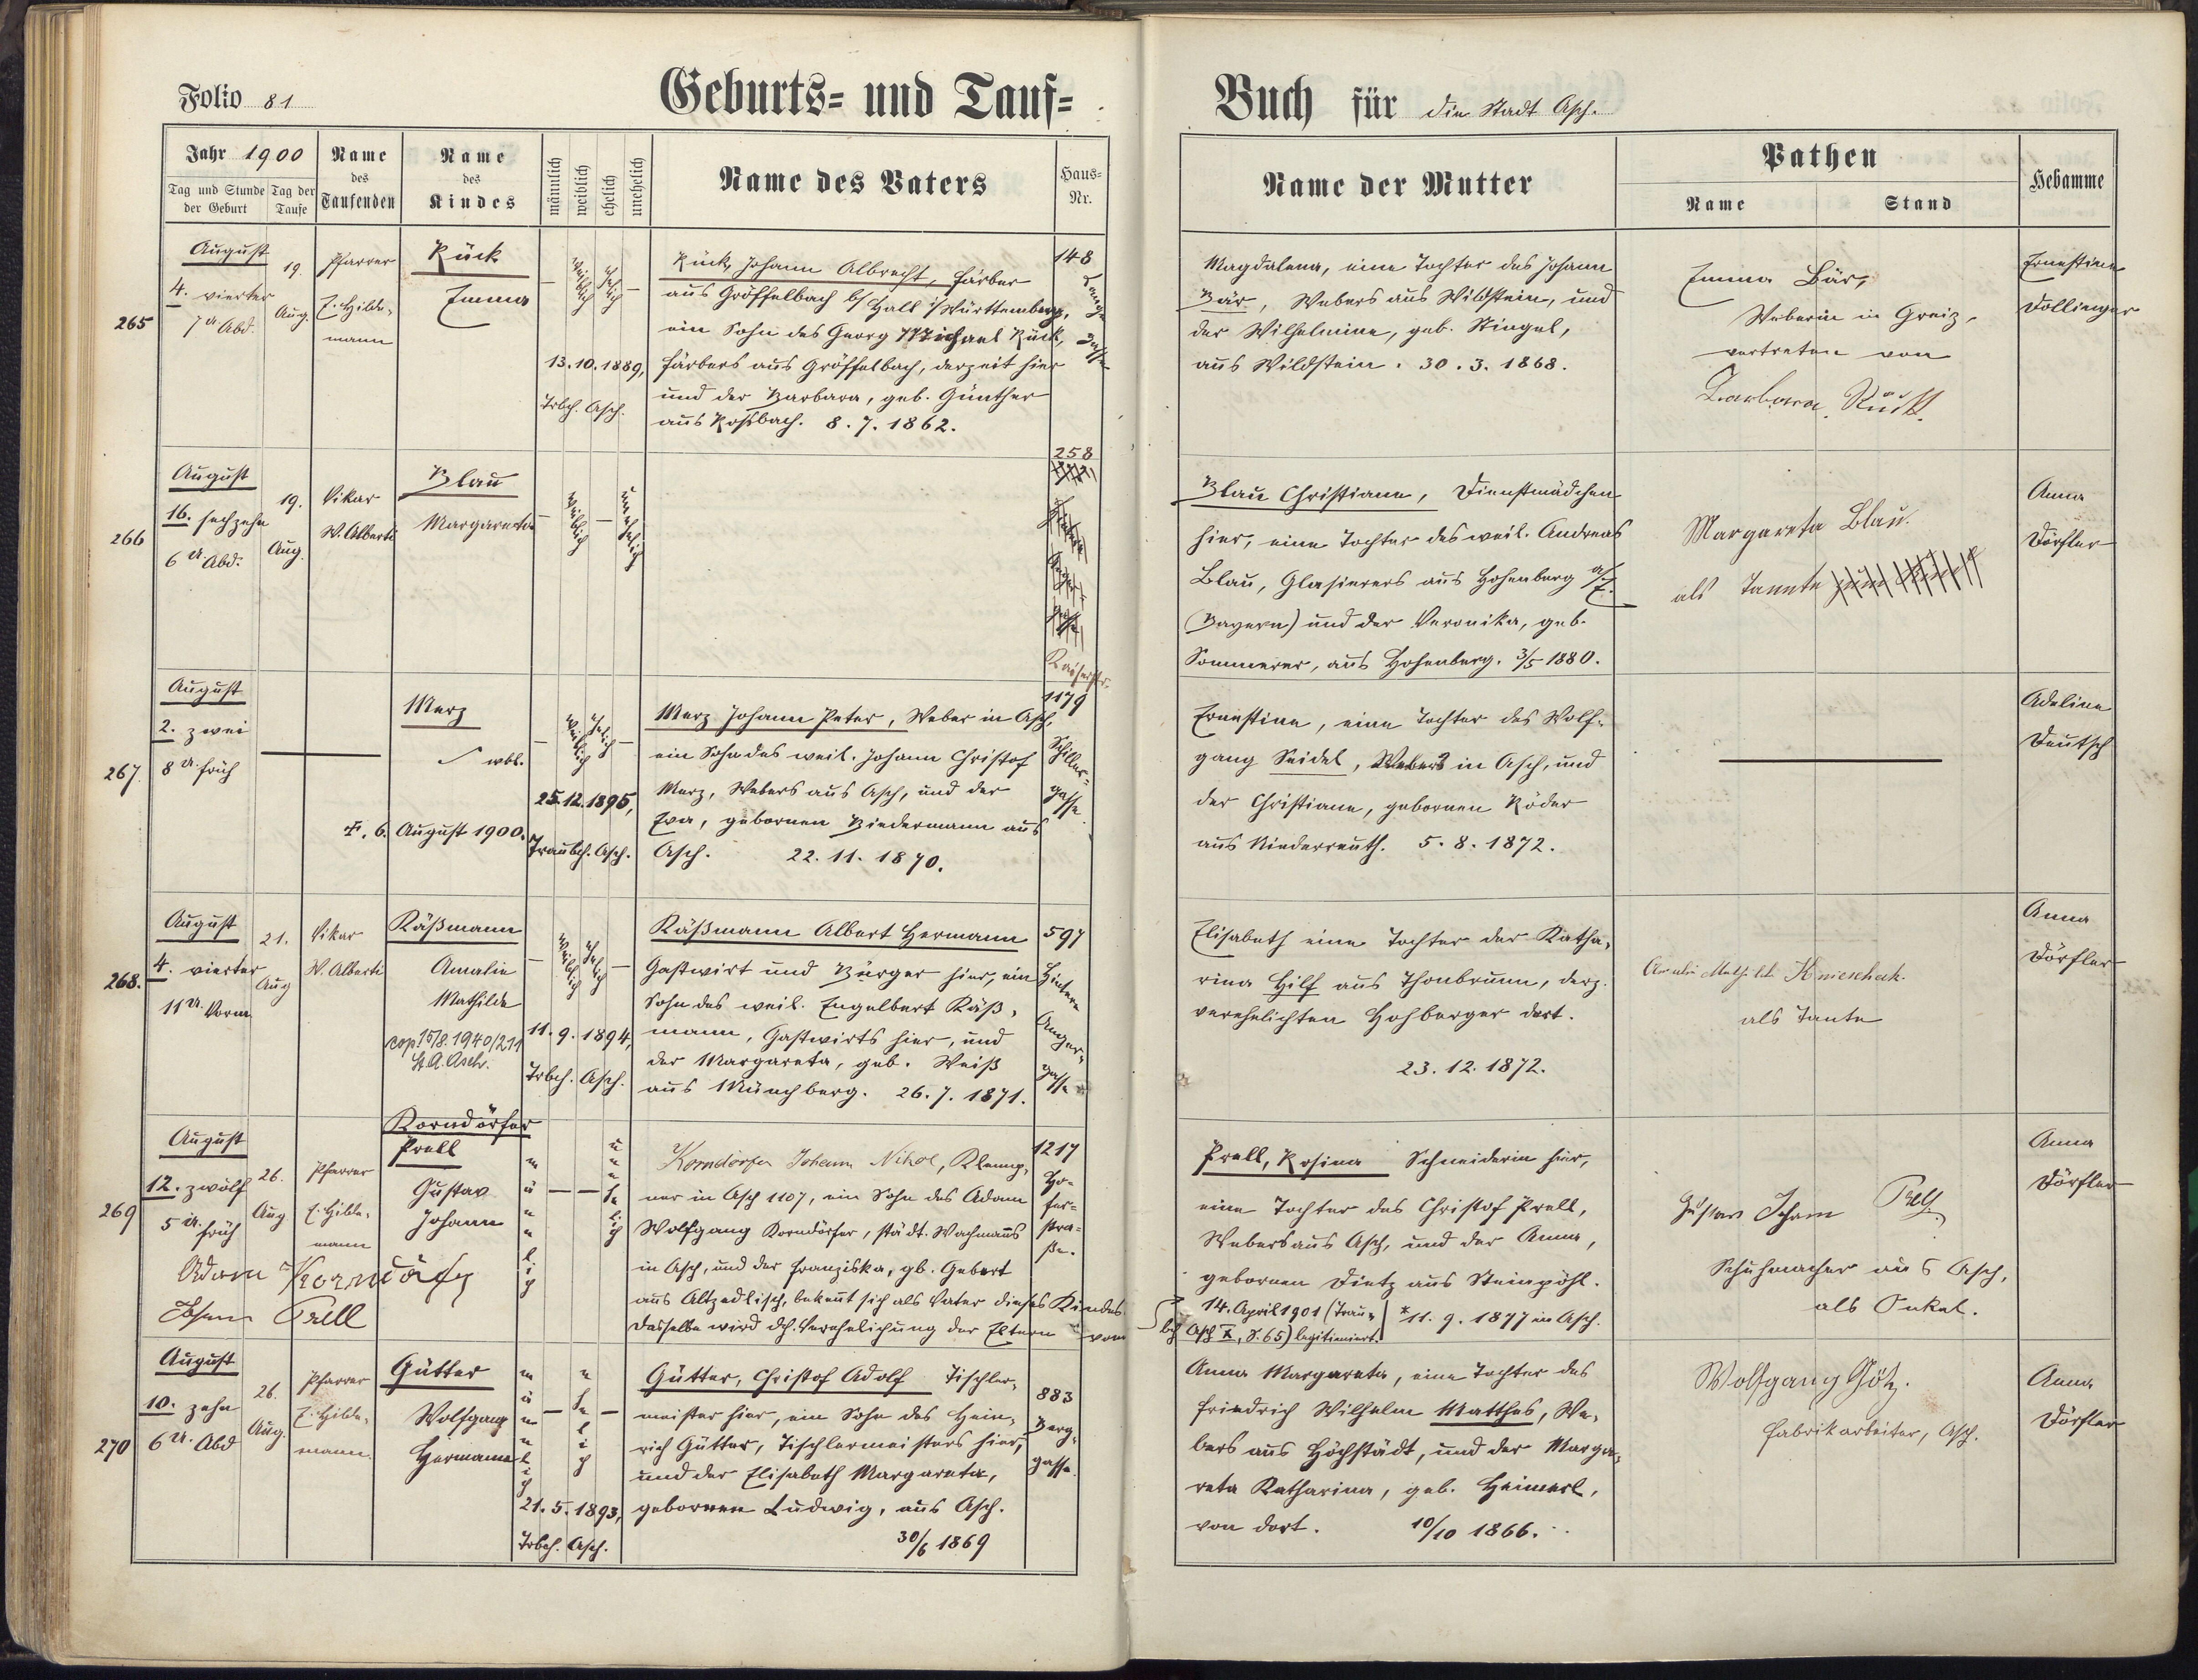 Folio 81
Geburts- und Tauf-
Buch für die Stadt Asch.
Jahr 1900
Tag und Stunde der Geburt
Tag der Taufe
Name des Taufenden
Name des Kindes
männlich
weiblich
ehelich
unehelich
Name des Vaters
Haus-Nr.
Name der Mutter
Pathen
Name
Stand
Hebamme
265
August
4. vierter
7 U Abd.
19.
Aug.
Pfarrer
E. Hilde-
mann
Rück
Emma
—
weiblich
ehelich
—
13.10.1889,
Trbch. Asch.
Rück, Johann Albrecht, Färber
aus Gröffelbach b/Hall i/Württemberg,
ein Sohn des Georg Michael Rück,
Färbers aus Gröffelbach, derzeit hier
und der Barbara, geb. Günther
aus Roßbach. 8.7.1862.
148
Lange
Gasse
Magdalena, eine Tochter des Johann
Bär, Webers aus Wildstein, und
der Wilhelmine, geb. Stingel,
aus Wildstein. 30.3.1868.
Emma Bär,
Weberin in Greiz,
vertreten von
Barbara Rück.
Ernestine
Dollinger
266
August
16. sechzehn
6 U. Abd.
19.
Aug.
Vikar
W. Alberti
Blau
Margareta
—
weiblich
—
unehelich
258
Kaiserstr.
Blau Christiane, Dienstmädchen
hier, eine Tochter des weil. Andreas
Blau, Glasierers aus Hohenberg a/E.
(Bayern) und der Veronika, geb.
Sommerer, aus Hohenberg. 3/5 1880.
Margareta Blau.
als Tannte
Anna
Dörfler
267.
August
2. zwei
8 U. früh
—
Merz
wbl.
+. 6. August 1900.
—
weiblich
ehelich
—
25.12.1895,
Traubch. Asch.
Merz Johann Peter, Weber in Asch,
ein Sohn des weil. Johann Christof
Merz, Webers aus Asch, und der
Eva, gebornen Biedermann aus
Asch. 22.11.1870.
1179
Schiller-
gasse.
Ernestine, eine Tochter des Wolf-
gang Seidel, Webers in Asch, und
der Christiane, gebornen Röder
aus Niederreuth. 5.8.1872.
—
Adeline
Deutsch
268.
August
4. vierter
11 U. Vorm
21.
Aug
Vikar
W. Alberti
Käßmann
Amalie
Mathilde
cop. 15/8. 1940/211
St. A. Asch.
—
weiblich
ehelich
—
11.9.1894,
Trbch. Asch.
Käßmann Albert Hermann
Gastwirt und Bürger hier, ein
Sohn des weil. Engelbert Käß-
mann, Gastwirts hier, und
der Margareta, geb. Weiß
aus Münchberg. 26.7.1871.
597
Hintere
Anger-
gasse
Elisabeth eine Tochter der Katha-
rina Hilf aus Thonbrunn, derz.
verehelichten Hohberger dort.
23.12.1872.
Amalie Mathilde Knieschek.
als Tante
Anna
Dörfler
269
August
12. zwölf
5 U. früh
26.
Aug
Pfarrer
E. Hilde-
mann
Korndörfer
Prell
Gustav
Johann
männlich
—
—
unehelich
Adam Korndörfer
Johann Prell
Korndörfer Johann Nikol, Klemp-
ner in Asch 1107, ein Sohn des Adam
Wolfgang Korndörfer, städt. Wachmanns
in Asch, und der Franziska, gb. Gebert
aus Altzedlisch, bekennt sich als Vater dieses Kindes
Dasselbe wird dch. Verehelichung der Eltern vom
1217
Ho-
fer-
stra-
ße.
Prell, Rosina Schneiderin hier,
eine Tochter des Christof Prell,
Webers aus Asch, und der Anna,
gebornen Dietz aus Steinpöhl.
14. April 1901 (Trau-
bch Asch X, S. 65) legitimiert.
*11.9.1877 in Asch.
Gustav Johann Prell
Schuhmacher aus Asch,
als Onkel.
Anna
Dörfler
270
August
10. zehn
6 U. Abd
26.
Aug.
Pfarrer
E. Hilde-
mann.
Gütter
Wolfgang
Hermann
männlich
—
ehelich
—
21.5.1893,
Trbch. Asch.
Gütter, Christof Adolf Tischler-
meister hier, ein Sohn des Hein-
rich Gütter, Tischlermeisters hier,
und der Elisabeth Margareta,
gebornen Ludwig, aus Asch.
30/6 1869
883
Berg-
gasse.
Anna Margareta, eine Tochter des
Friedrich Wilhelm Matthes, We-
bers aus Höchstädt, und der Marga-
reta Katharina, geb. Heimerl,
von dort. 10/10 1866.
Wolfgang Götz.
Fabrikarbeiter, Asch.
Anna
Dörfler